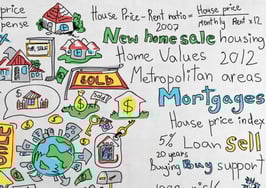 price
pense
House Price-Rent ratio = House price
Monthly Rent x12
2007
New home sale housing
FOR SALE
Home Values 2012
SOLD
Metropolitan areas
Mortgages
House price index
5% Loan sell
20 years
Buying buy support